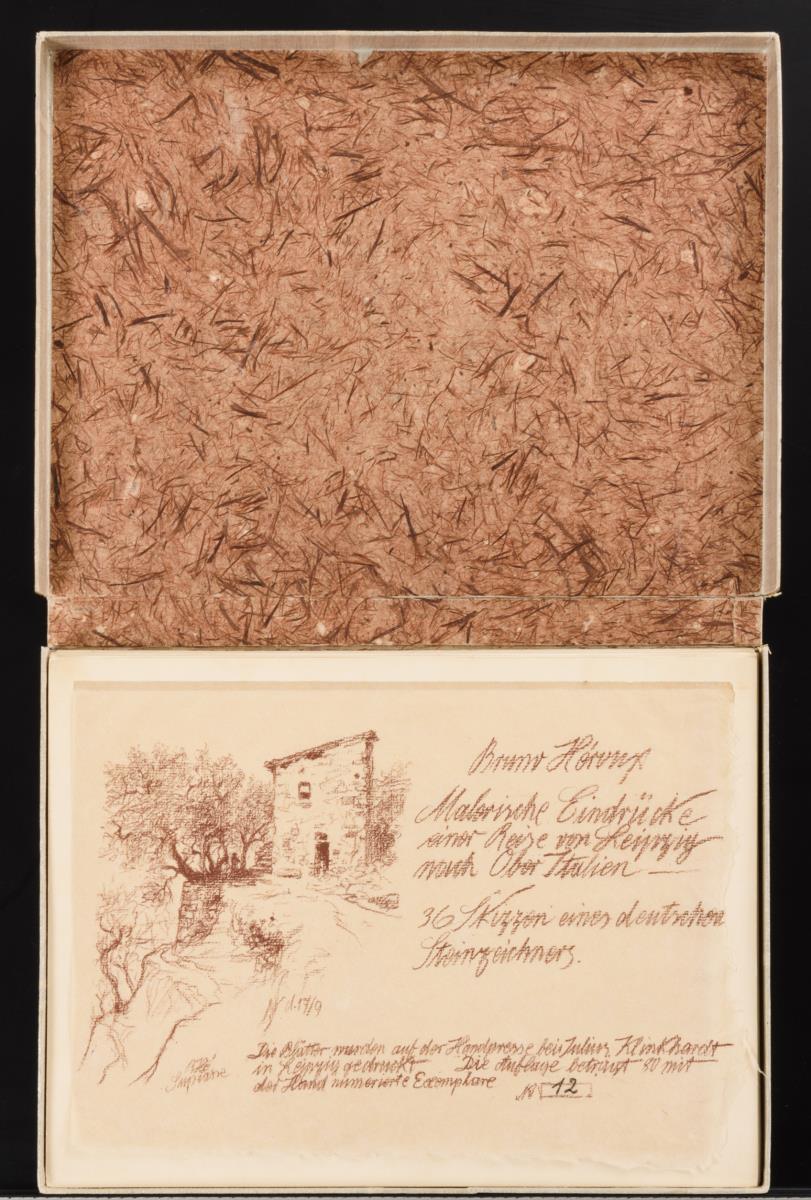 Bruno Héroux
Malerische Eindrücke
einer Reise von Leipzig
nach Ober Italien
36 Skizzen eines deutschen
Steinzeichners.
d. 17/9
Die Blätter wurden auf der Handpresse bei Julius Klinkhardt
in Leipzig gedruckt Die Auflage beträgt 80 mit
der Hand numerierte Exemplare
No 12